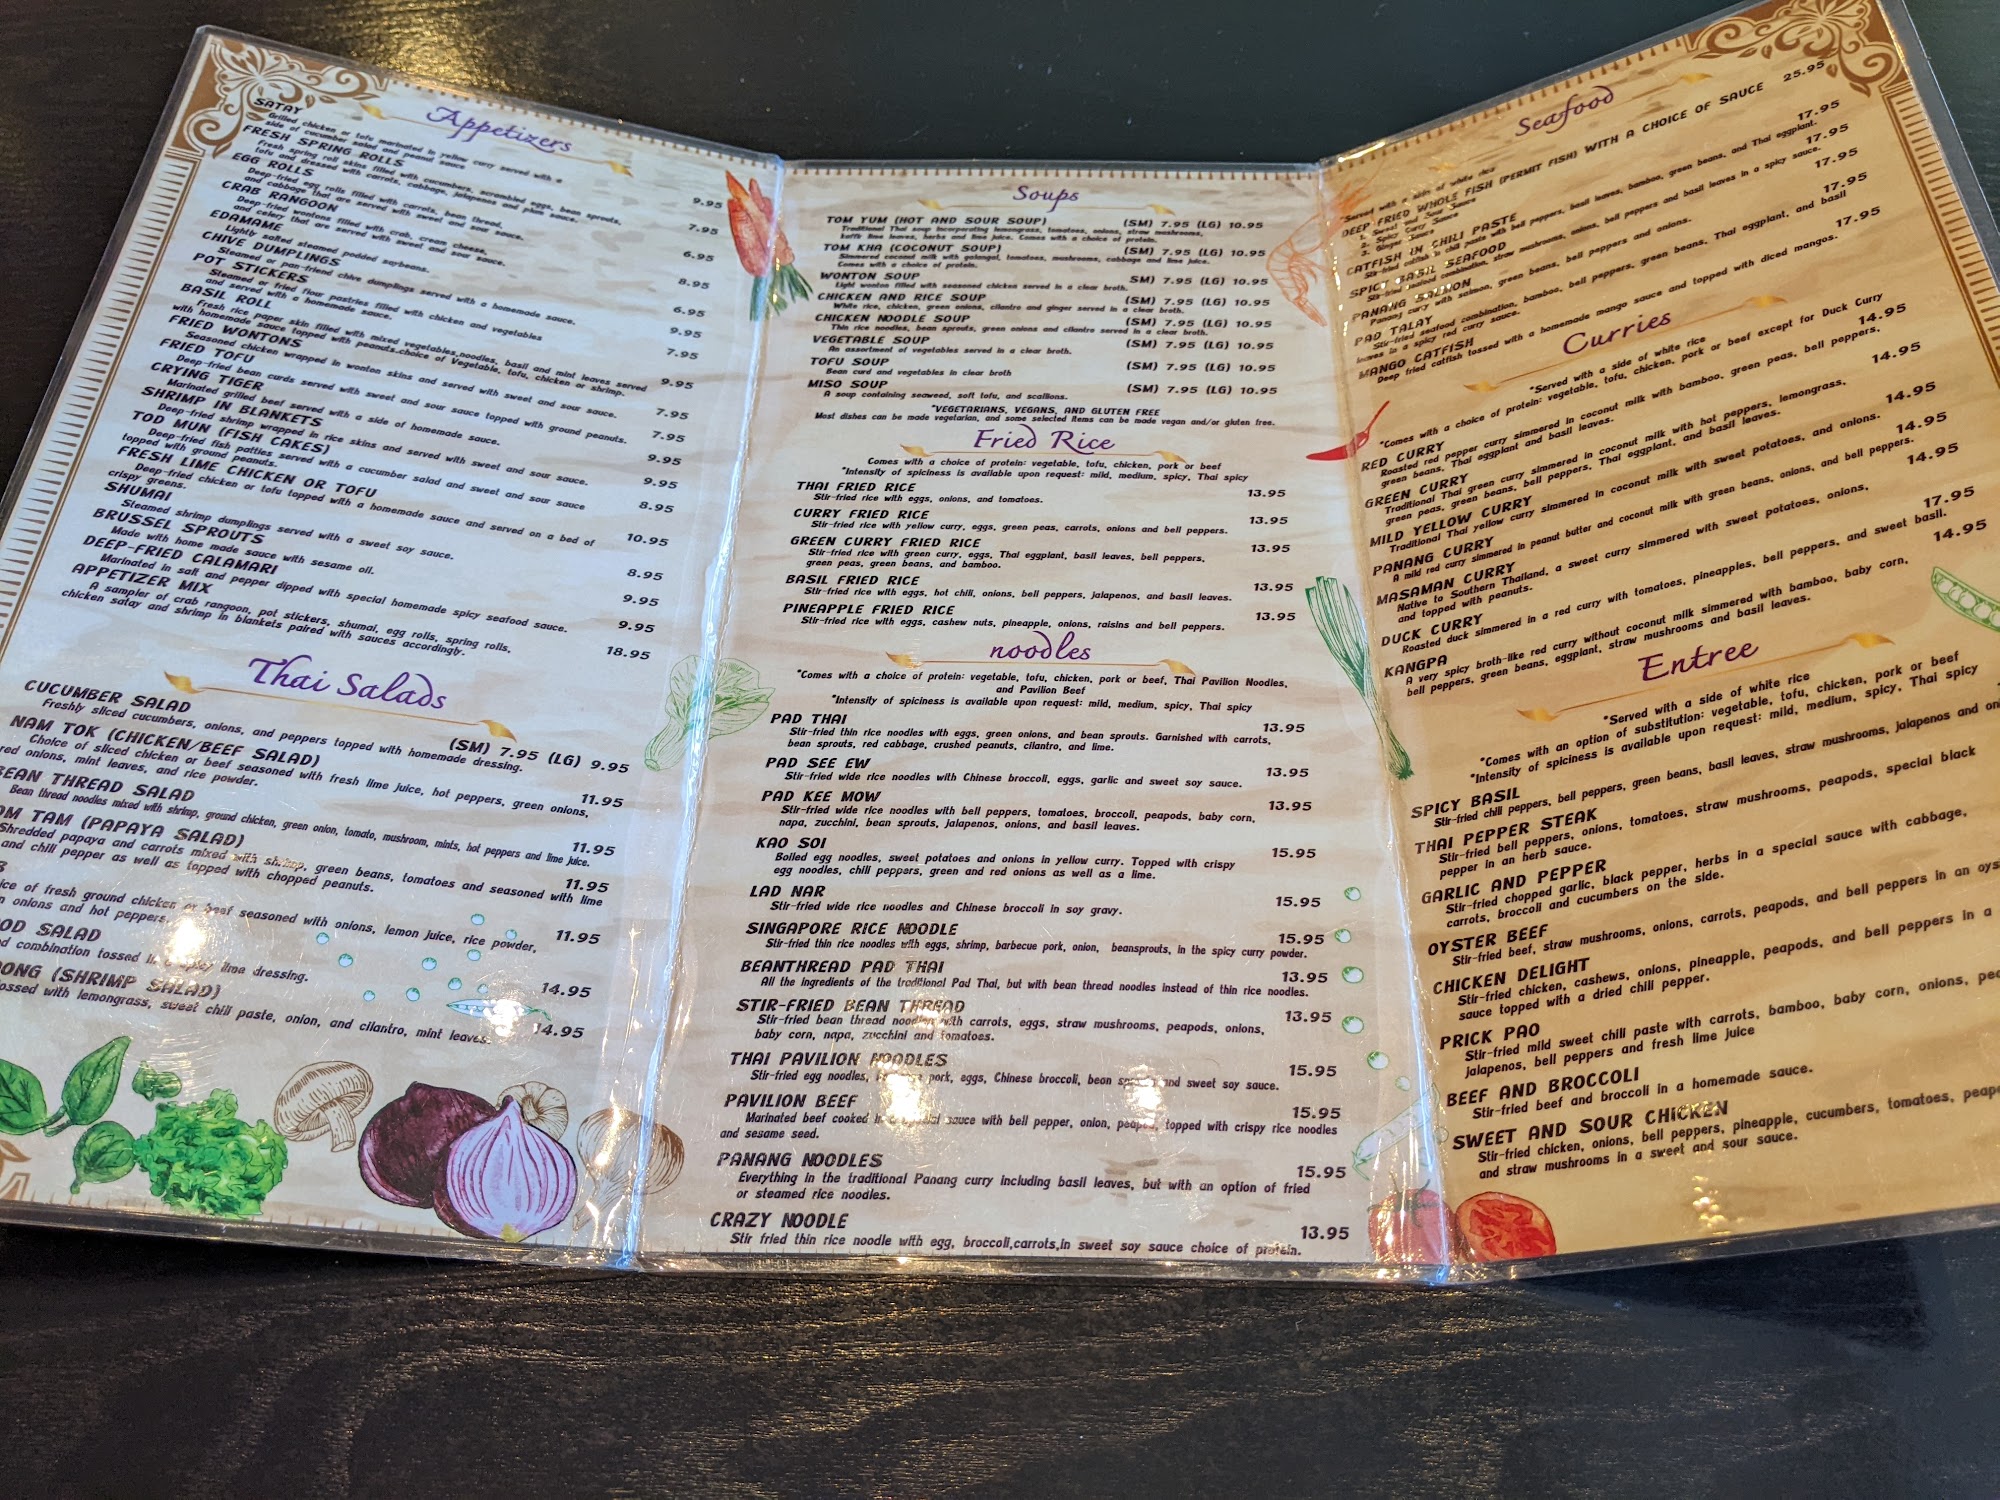 Appetizers
SATAY
Grilled chicken or tofu marinated in yellow curry served with a
side of cucumber salad and peanut sauce
9.95
FRESH SPRING ROLLS
Fresh spring roll skins filled with cucumbers, scrambled eggs, bean sprouts,
tofu and dressed with carrots, cabbage, jalapenos and plum sauce.
7.95
EGG ROLLS
Deep-fried egg rolls filled with carrots, bean thread,
and cabbage that are served with sweet and sour sauce.
6.95
CRAB RANGOON
Deep-fried wontons filled with crab, cream cheese,
and celery that are served with sweet and sour sauce.
8.95
EDAMAME
Lightly salted steamed podded soybeans.
6.95
CHIVE DUMPLINGS
Steamed or pan-friend chive dumplings served with a homemade sauce.
9.95
POT STICKERS
Steamed or fried flour pastries filled with chicken and vegetables
and served with a homemade sauce.
7.95
BASIL ROLL
Fresh rice paper skin filled with mixed vegetables,noodles, basil and mint leaves served
with homemade sauce topped with peanuts.choice of Vegetable, tofu, chicken or shrimp.
9.95
FRIED WONTONS
Seasoned chicken wrapped in wonton skins and served with sweet and sour sauce.
7.95
FRIED TOFU
Deep-fried bean curds served with sweet and sour sauce topped with ground peanuts.
7.95
CRYING TIGER
Marinated grilled beef served with a side of homemade sauce.
9.95
SHRIMP IN BLANKETS
Deep-fried shrimp wrapped in rice skins and served with sweet and sour sauce.
9.95
TOD MUN (FISH CAKES)
Deep-fried fish patties served with a cucumber salad and sweet and sour sauce
topped with ground peanuts.
8.95
FRESH LIME CHICKEN OR TOFU
Deep-fried chicken or tofu topped with a homemade sauce and served on a bed of
crispy greens.
10.95
SHUMAI
Steamed shrimp dumplings served with a sweet soy sauce.
8.95
BRUSSEL SPROUTS
Made with home made sauce with sesame oil.
9.95
DEEP-FRIED CALAMARI
Marinated in salt and pepper dipped with special homemade spicy seafood sauce.
9.95
APPETIZER MIX
A sampler of crab rangoon, pot stickers, shumai, egg rolls, spring rolls,
chicken satay and shrimp in blankets paired with sauces accordingly.
18.95
Thai Salads
CUCUMBER SALAD
Freshly sliced cucumbers, onions, and peppers topped with homemade dressing.
(SM) 7.95 (LG) 9.95
NAM TOK (CHICKEN/BEEF SALAD)
Choice of sliced chicken or beef seasoned with fresh lime juice, hot peppers, green onions,
red onions, mint leaves, and rice powder.
11.95
BEAN THREAD SALAD
Bean thread noodles mixed with shrimp, ground chicken, green onion, tomato, mushroom, mints, hot peppers and lime juice.
11.95
TAM (PAPAYA SALAD)
Shredded papaya and carrots mixed with shrimp, green beans, tomatoes and seasoned with lime
and chill pepper as well as topped with chopped peanuts.
11.95
of fresh ground chicken or beef seasoned with onions, lemon juice, rice powder,
onions and hot peppers.
11.95
SALAD
combination tossed in lime dressing.
14.95
(SHRIMP SALAD)
with lemongrass, sweet chili paste, onion, and cilantro, mint leaves.
14.95
Soups
TOM YUM (HOT AND SOUR SOUP) (SM) 7.95 (LG) 10.95
Traditional Thai soup incorporating lemongrass, tomatoes, onions, straw mushrooms,
kaffir lime leaves, herbs and lime juice. Comes with a choice of protein.
TOM KHA (COCONUT SOUP) (SM) 7.95 (LG) 10.95
Simmered coconut milk with galangal, tomatoes, mushrooms, cabbage and lime juice.
Comes with a choice of protein.
WONTON SOUP SM) 7.95 (LG) 10.95
Light wonton filled with seasoned chicken served in a clear broth.
CHICKEN AND RICE SOUP (SM) 7.95 (LG) 10.95
White rice, chicken, green onions, cilantro and ginger served in a clear broth.
CHICKEN NOODLE SOUP (SM) 7.95 (LG) 10.95
Thin rice noodles, bean sprouts, green onions and cilantro served in a clear broth.
VEGETABLE SOUP (SM) 7.95 (LG) 10.95
An assortment of vegetables served in a clear broth.
TOFU SOUP (SM) 7.95 (LG) 10.95
Bean curd and vegetables in clear broth
MISO SOUP (SM) 7.95 (LG) 10.95
A soup containing seaweed, soft tofu, and scallions.
*VEGETARIANS, VEGANS, AND GLUTEN FREE
Most dishes can be made vegetarian, and some selected items can be made vegan and/or gluten free.
Fried Rice
Comes with a choice of protein: vegetable, tofu, chicken, pork or beef
*Intensity of spiciness is available upon request: mild, medium, spicy, Thai spicy
THAI FRIED RICE 13.95
Stir-fried rice with eggs, onions, and tomatoes.
CURRY FRIED RICE 13.95
Stir-fried rice with yellow curry, eggs, green peas, carrots, onions and bell peppers.
GREEN CURRY FRIED RICE 13.95
Stir-fried rice with green curry, eggs, Thai eggplant, basil leaves, bell peppers,
green peas, green beans, and bamboo.
BASIL FRIED RICE 13.95
Stir-fried rice with eggs, hot chili, onions, bell peppers, jalapenos, and basil leaves.
PINEAPPLE FRIED RICE 13.95
Stir-fried rice with eggs, cashew nuts, pineapple, onions, raisins and bell peppers.
noodles
*Comes with a choice of protein: vegetable, tofu, chicken, pork or beef, Thai Pavilion Noodles,
and Pavilion Beef
*Intensity of spiciness is available upon request: mild, medium, spicy, Thai spicy
PAD THAI 13.95
Stir-fried thin rice noodles with eggs, green onions, and bean sprouts. Garnished with carrots,
bean sprouts, red cabbage, crushed peanuts, cilantro, and lime.
PAD SEE EW 13.95
Stir-fried wide rice noodles with Chinese broccoli, eggs, garlic and sweet soy sauce.
PAD KEE MOW 13.95
Stir-fried wide rice noodles with bell peppers, tomatoes, broccoli, peapods, baby corn,
napa, zucchini, bean sprouts, jalapenos, onions, and basil leaves.
KAO SOI 15.95
Boiled egg noodles, sweet potatoes and onions in yellow curry. Topped with crispy
egg noodles, chili peppers, green and red onions as well as a lime.
LAD NAR 15.95
Stir-fried wide rice noodles and Chinese broccoli in soy gravy.
SINGAPORE RICE NOODLE 15.95
Stir-fried thin rice noodles with eggs, shrimp, barbecue pork, onion, beansprouts, in the spicy curry powder.
BEANTHREAD PAD THAI 13.95
All the ingredients of the traditional Pad Thai, but with bean thread noodles instead of thin rice noodles.
STIR-FRIED BEAN THREAD 13.95
Stir-fried bean thread noodles with carrots, eggs, straw mushrooms, peapods, onions,
baby corn, napa, zucchini and tomatoes.
THAI PAVILION NOODLES 15.95
Stir-fried egg noodles, pork, eggs, Chinese broccoli, bean and sweet soy sauce.
PAVILION BEEF 15.95
Marinated beef cooked in sauce with bell pepper, onion, peapod, topped with crispy rice noodles
and sesame seed.
PANANG NOODLES 15.95
Everything in the traditional Panang curry including basil leaves, but with an option of fried
or steamed rice noodles.
CRAZY NOODLE 13.95
Stir fried thin rice noodle with egg, broccoli,carrots,in sweet soy sauce choice of protein.
Seafood
*Served with a side of white rice
DEEP FRIED WHOLE FISH (PERMIT FISH) WITH A CHOICE OF SAUCE 25.95
1. Sweet and Sour Sauce
2. Spicy Curry Sauce
3. Ginger Sauce
CATFISH IN CHILI PASTE 17.95
Stir-fried catfish in chili paste with bell peppers, basil leaves, bamboo, green beans, and Thai eggplant.
SPICY BASIL SEAFOOD 17.95
Stir-fried seafood combination, straw mushrooms, onions, bell peppers and basil leaves in a spicy sauce.
PANANG SALMON 17.95
Panang curry with salmon, green beans, bell peppers and onions.
PAD TALAY 17.95
Stir-fried seafood combination, bamboo, bell peppers, green beans, Thai eggplant, and basil
leaves in a spicy red curry sauce.
MANGO CATFISH 17.95
Deep fried catfish tossed with a homemade mango sauce and topped with diced mangos.
Curries
*Served with a side of white rice
*Comes with a choice of protein: vegetable, tofu, chicken, pork or beef except for Duck Curry
RED CURRY 14.95
Roasted red pepper curry simmered in coconut milk with bamboo, green peas, bell peppers,
green beans, Thai eggplant and basil leaves.
GREEN CURRY 14.95
Traditional Thai green curry simmered in coconut milk with hot peppers, lemongrass,
green peas, green beans, bell peppers, Thai eggplant, and basil leaves.
MILD YELLOW CURRY 14.95
Traditional Thai yellow curry simmered in coconut milk with sweet potatoes, and onions.
PANANG CURRY 14.95
A mild red curry simmered in peanut butter and coconut milk with green beans, onions, and bell peppers.
MASAMAN CURRY 14.95
Native to Southern Thailand, a sweet curry simmered with sweet potatoes, onions,
and topped with peanuts.
DUCK CURRY 17.95
Roasted duck simmered in a red curry with tomatoes, pineapples, bell peppers, and sweet basil.
KANGPA 14.95
A very spicy broth-like red curry without coconut milk simmered with bamboo, baby corn,
bell peppers, green beans, eggplant, straw mushrooms and basil leaves.
Entree
*Served with a side of white rice
*Comes with an option of substitution: vegetable, tofu, chicken, pork or beef
*Intensity of spiciness is available upon request: mild, medium, spicy, Thai spicy
SPICY BASIL
Stir-fried chill peppers, bell peppers, green beans, basil leaves, straw mushrooms, jalapenos and
THAI PEPPER STEAK
Stir-fried bell peppers, onions, tomatoes, straw mushrooms, peapods, special black
pepper in an herb sauce.
GARLIC AND PEPPER
Stir-fried chopped garlic, black pepper, herbs in a special sauce with cabbage,
carrots, broccoli and cucumbers on the side.
OYSTER BEEF
Stir-fried beef, straw mushrooms, onions, carrots, peapods, and bell peppers in an
CHICKEN DELIGHT
Stir-fried chicken, cashews, onions, pineapple, peapods, and bell peppers in a
sauce topped with a dried chill pepper.
PRICK PAO
Stir-fried mild sweet chill paste with carrots, bamboo, baby corn, onions,
jalapenos, bell peppers and fresh lime juice
BEEF AND BROCCOLI
Stir-fried beef and broccoli in a homemade sauce.
SWEET AND SOUR CHICKEN
Stir-fried chicken, onions, bell peppers, pineapple, cucumbers, tomatoes,
and straw mushrooms in a sweet and sour sauce.